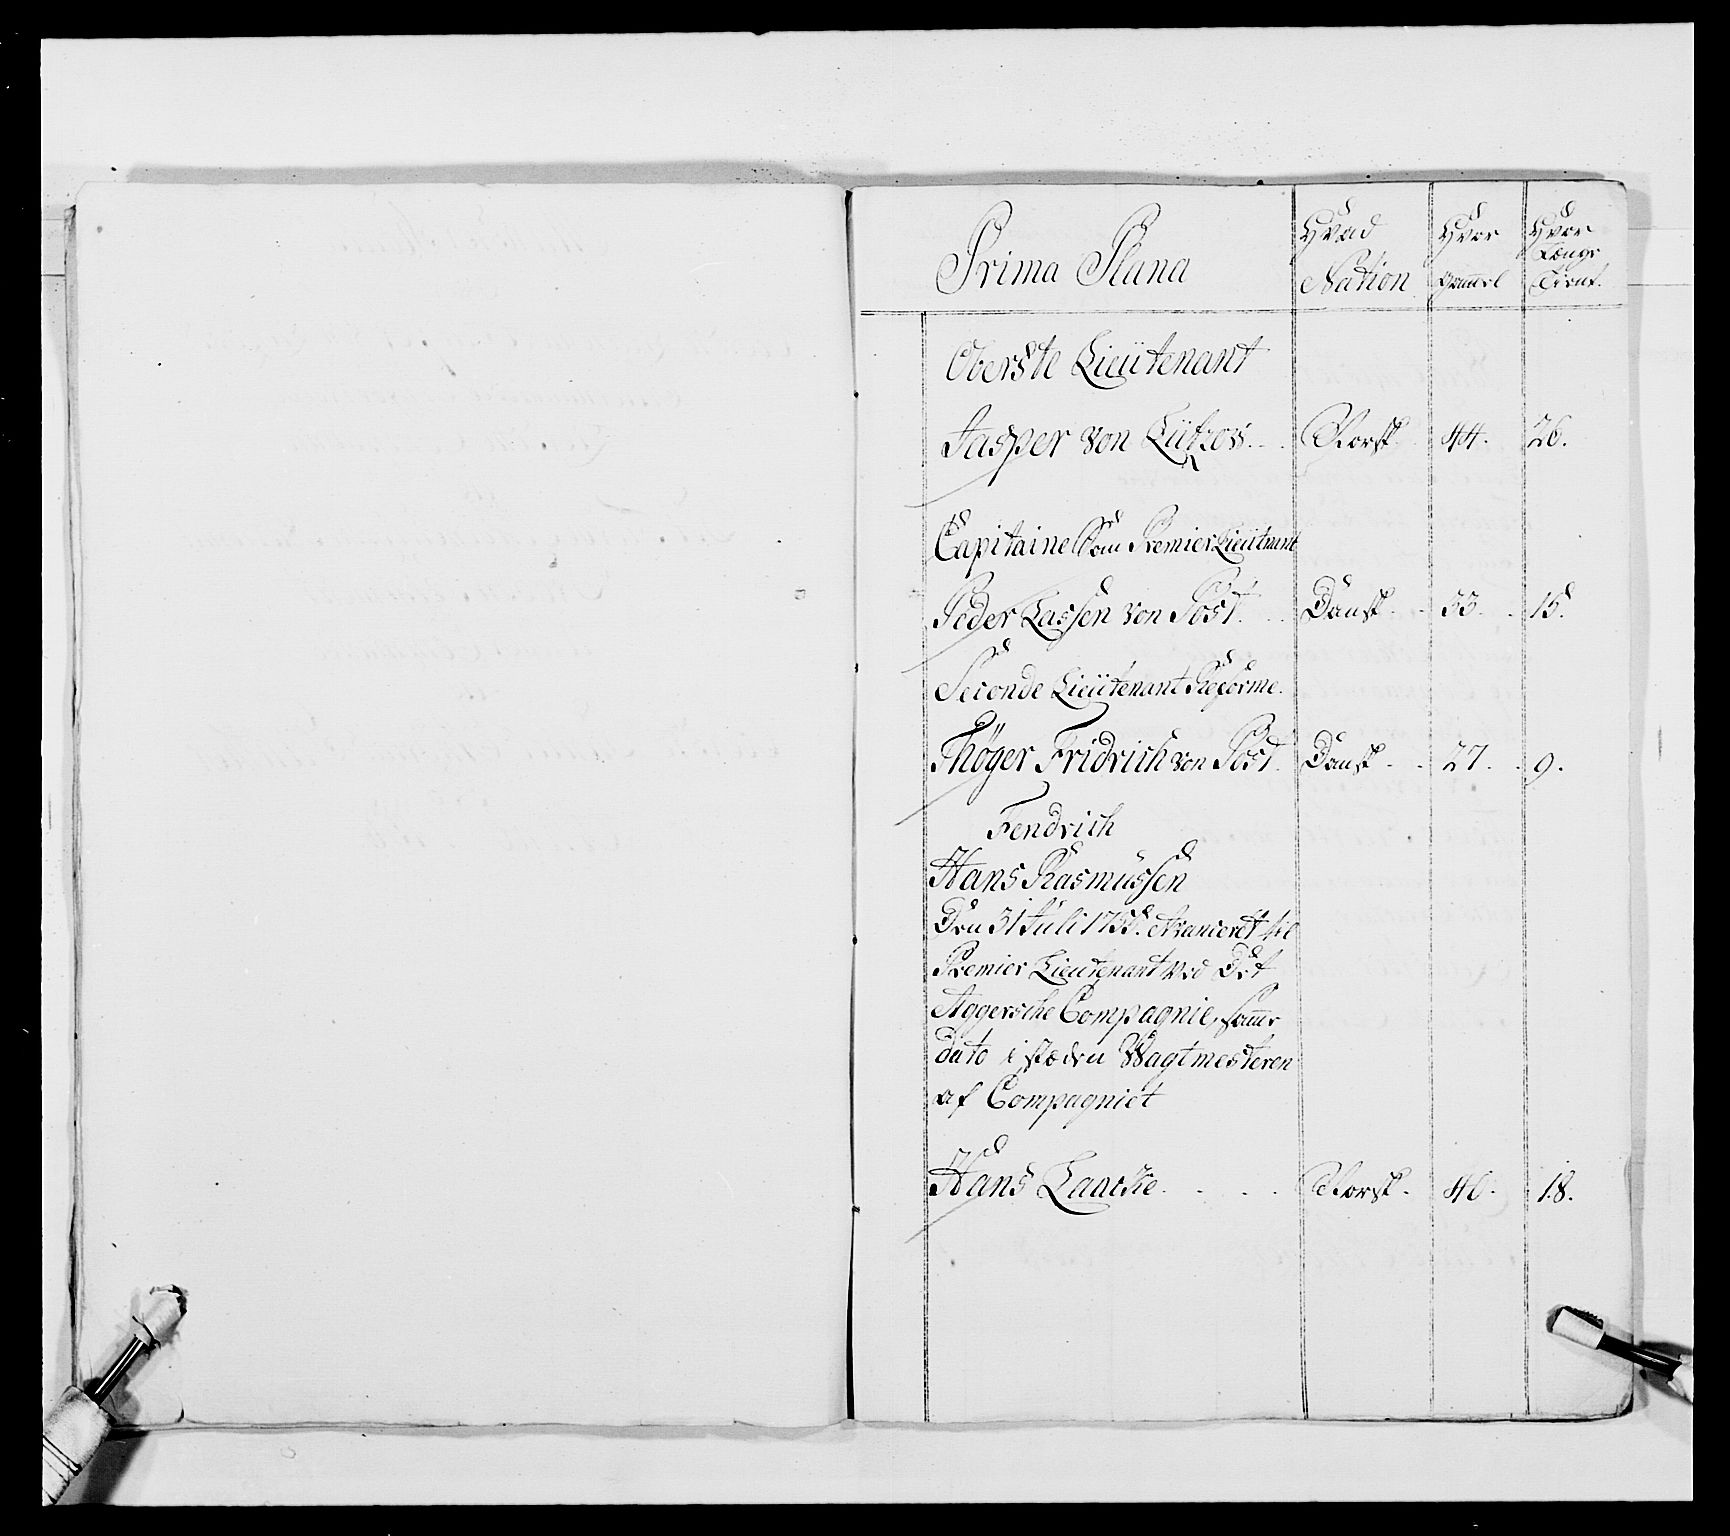 Prima Plana
Hvad Nation
Hvor gammel
Hvor Længe Tient.
Oberste Lieütenant
Jasper von Lützow. Norsk 44. 26.
Capitaine Som Premier Lieütenant
Peder Lassen von Post. Dansk. 33. 15.
Seconde Lieütenant Reforme.
Thøger Fridrich von Post Dansk. 27. 9.
Fendrich
Hans Rasmüssen
Den 31 Juli 1755. Avanceret til
Premier Lieutenant ved Det
Aggersche Compagnie, samme
dato i stæden Wagtmesteren
af Compagniet
Hans Lancke. Norsk. 40. 18.